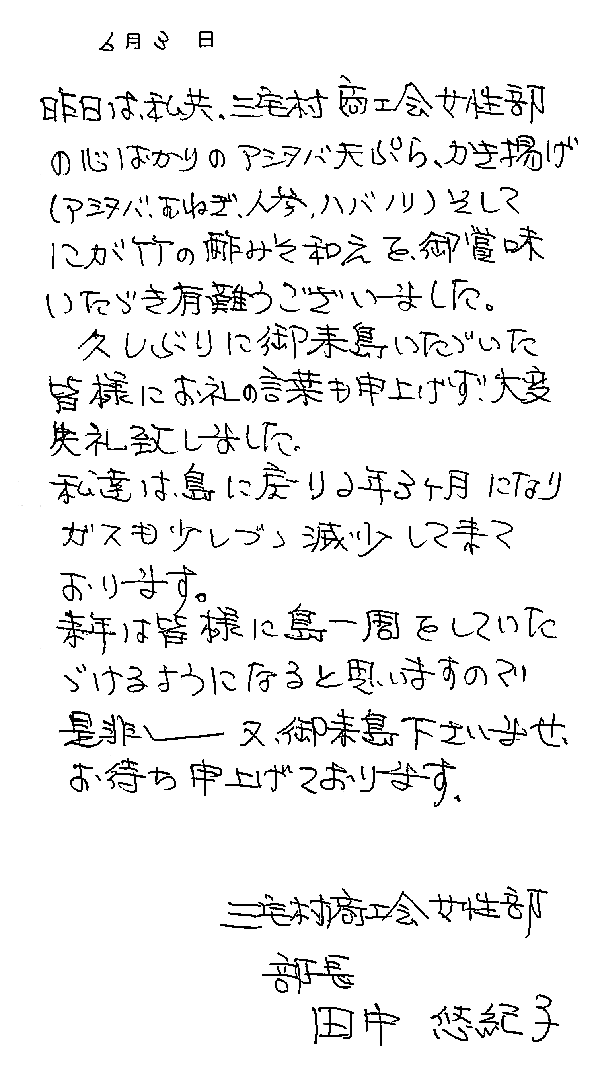 6月3日
昨日は、私共、三宅村商工会女性部
の心ばかりのアシタバ天ぷら、かき揚げ
(アシタバ、むねぎ、人参、ハバノリ)そして
にが竹の酢みそ和えを、御賞味
いただき有難うございました。
久しぶりに御来島いただいた
皆様にお礼の言葉も申上げず、大変
失礼致しました。
私達は、島に戻り2年3ヶ月になり
ガスも少しづゝ減少して来て
おります。
来年は皆様に島一周をしていた
ゞけるようになると思いますので
是非 又、御来島下さいませ、
お待ち申上げております。
三宅村商工会女性部
部長
田中 悠紀子